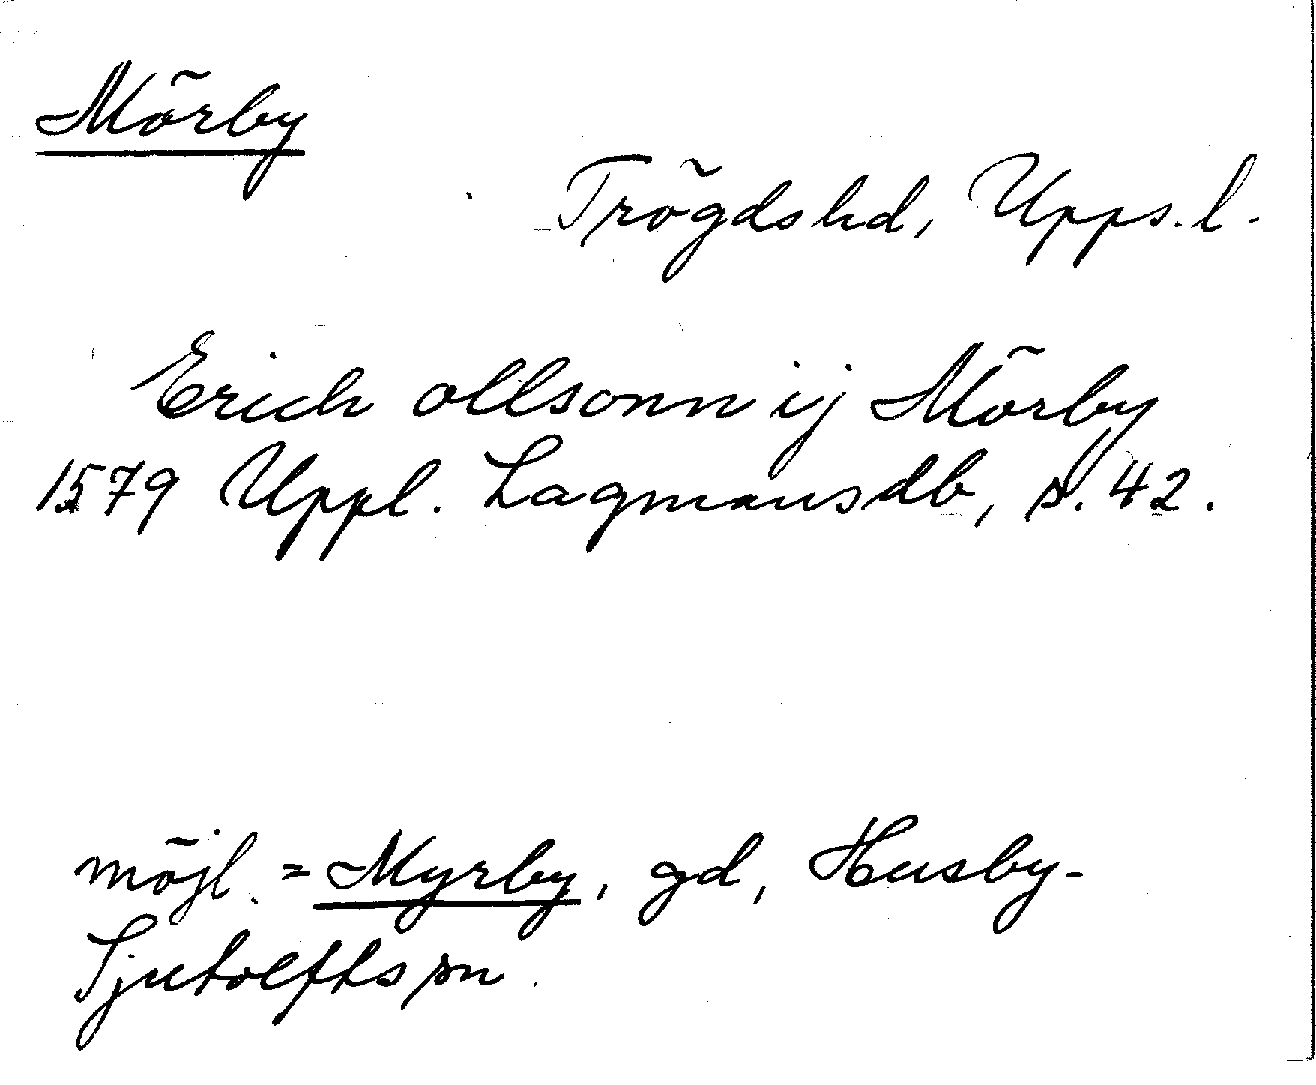 Mörby
Trögds hd, Upps. l.
Erich ollsonn ij Mörby
1579 Uppl. Lagmansdb, s. 42.
möjl. = Myrby, gd, Husby-
Sjutolfts sn.